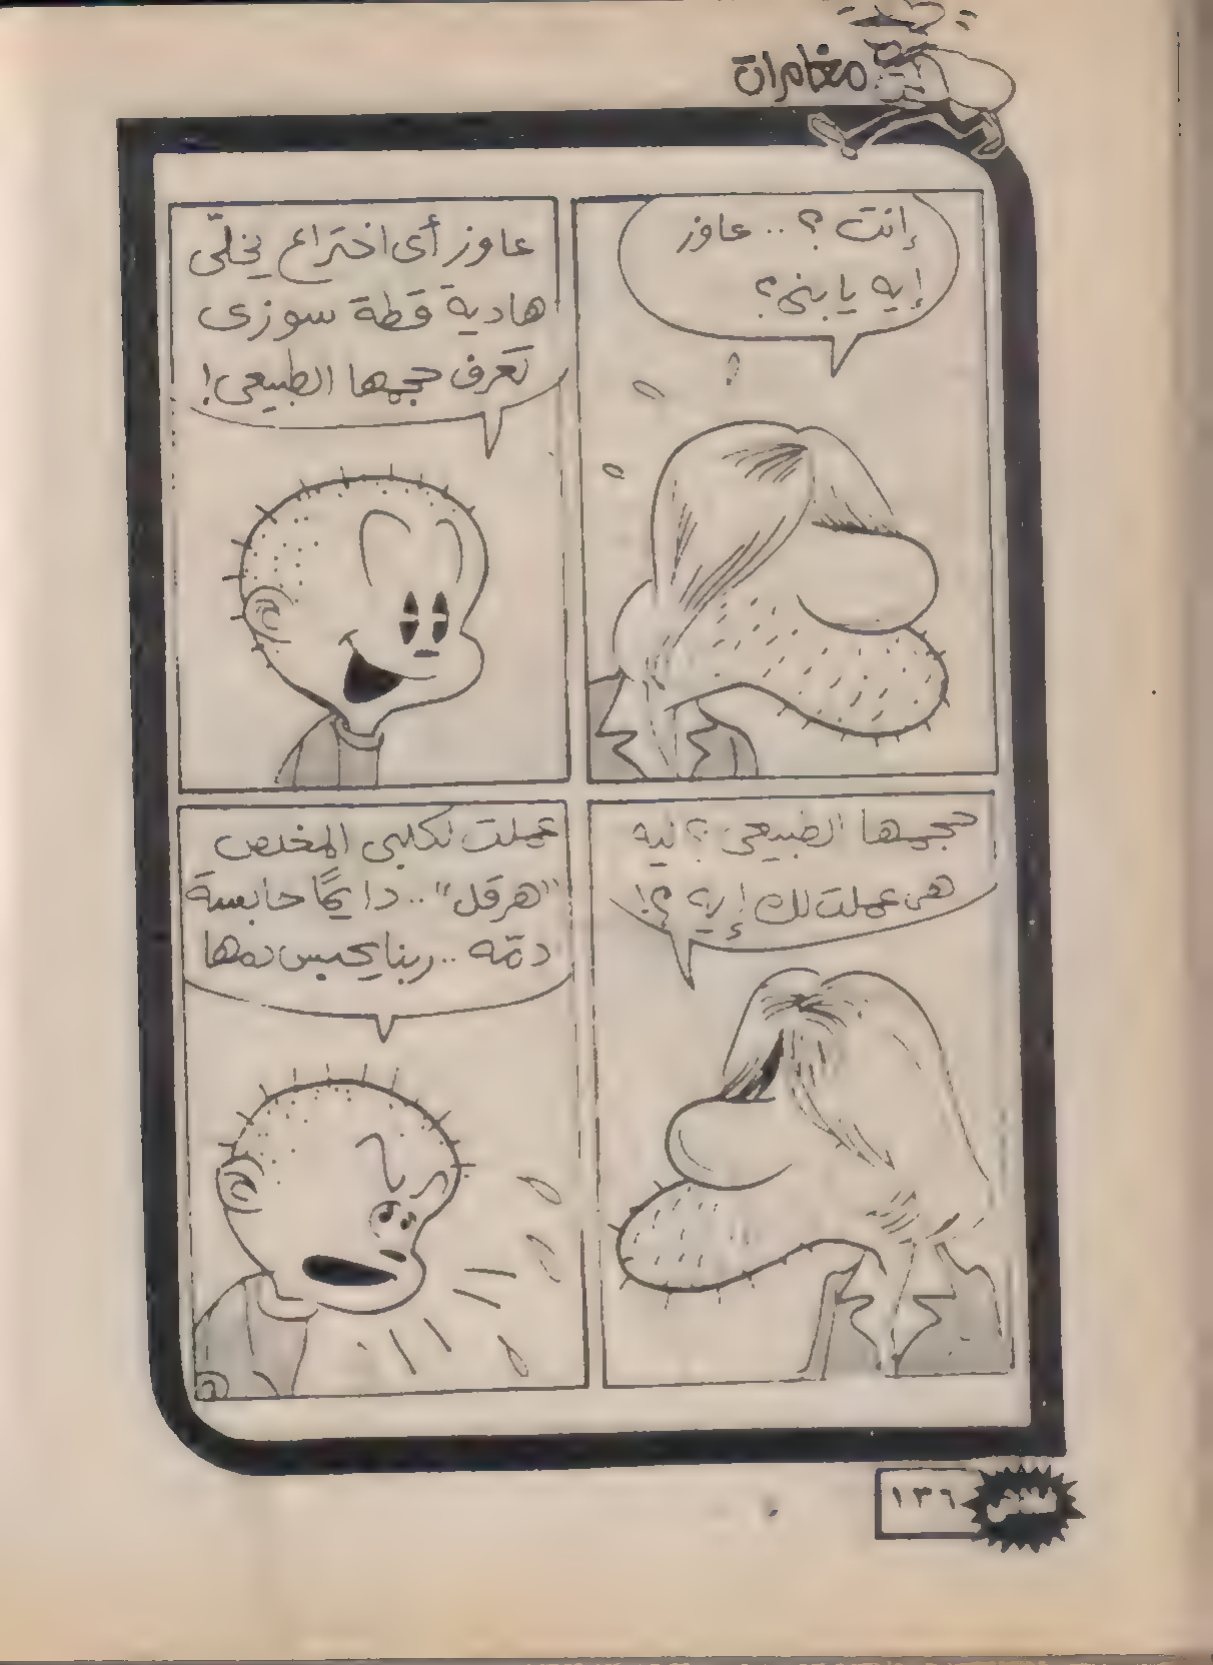 مغامرات
إنت؟.. عاوز
إيه يا بنى؟
عاوز أى اختراع يخلّى
هادية قطة سوزى
تعرف حجمها الطبيعى!
حجمها الطبيعى؟ ليه
هى عملت لك إيه؟!
عملت لكلبى المخلص
"هرقل".. دايمًا حابسة
دمّه.. ربنا يحبس دمها
فلاش
١٣٦